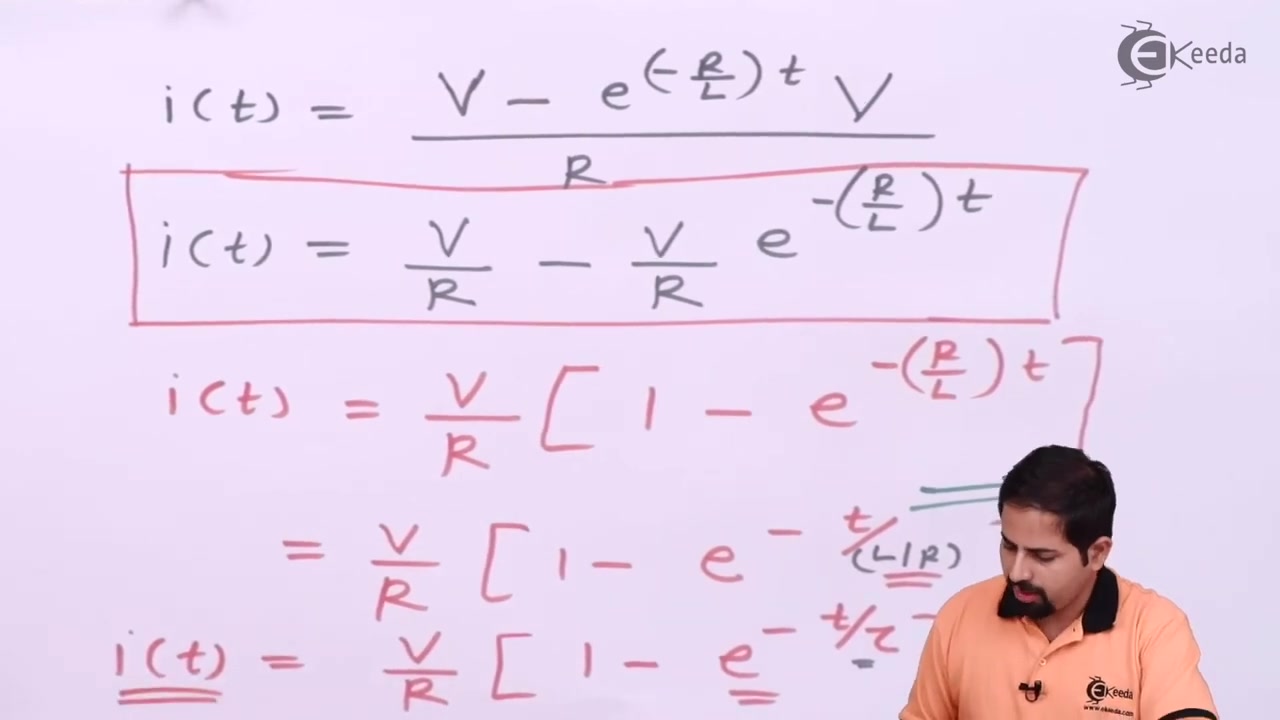 EKeeda
i(t) = V - e^(-R/L)t V / R
i(t) = V/R - V/R e^-(R/L)t
i(t) = V/R [ 1 - e^-(R/L)t ]
= V/R [ 1 - e^- t/(L/R)
i(t) = V/R [ 1 - e^- t/τ
EKeeda
www.ekeeda.com